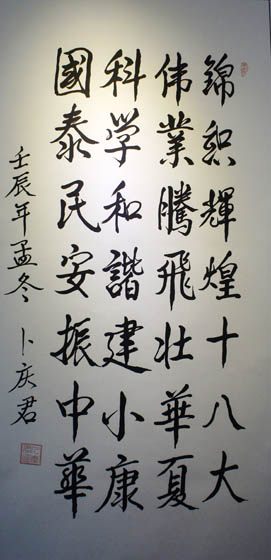 錦織輝煌十八大
伟業騰飛壮華夏
科学和諧建小康
國泰民安振中華
壬辰年孟冬 卜庆君